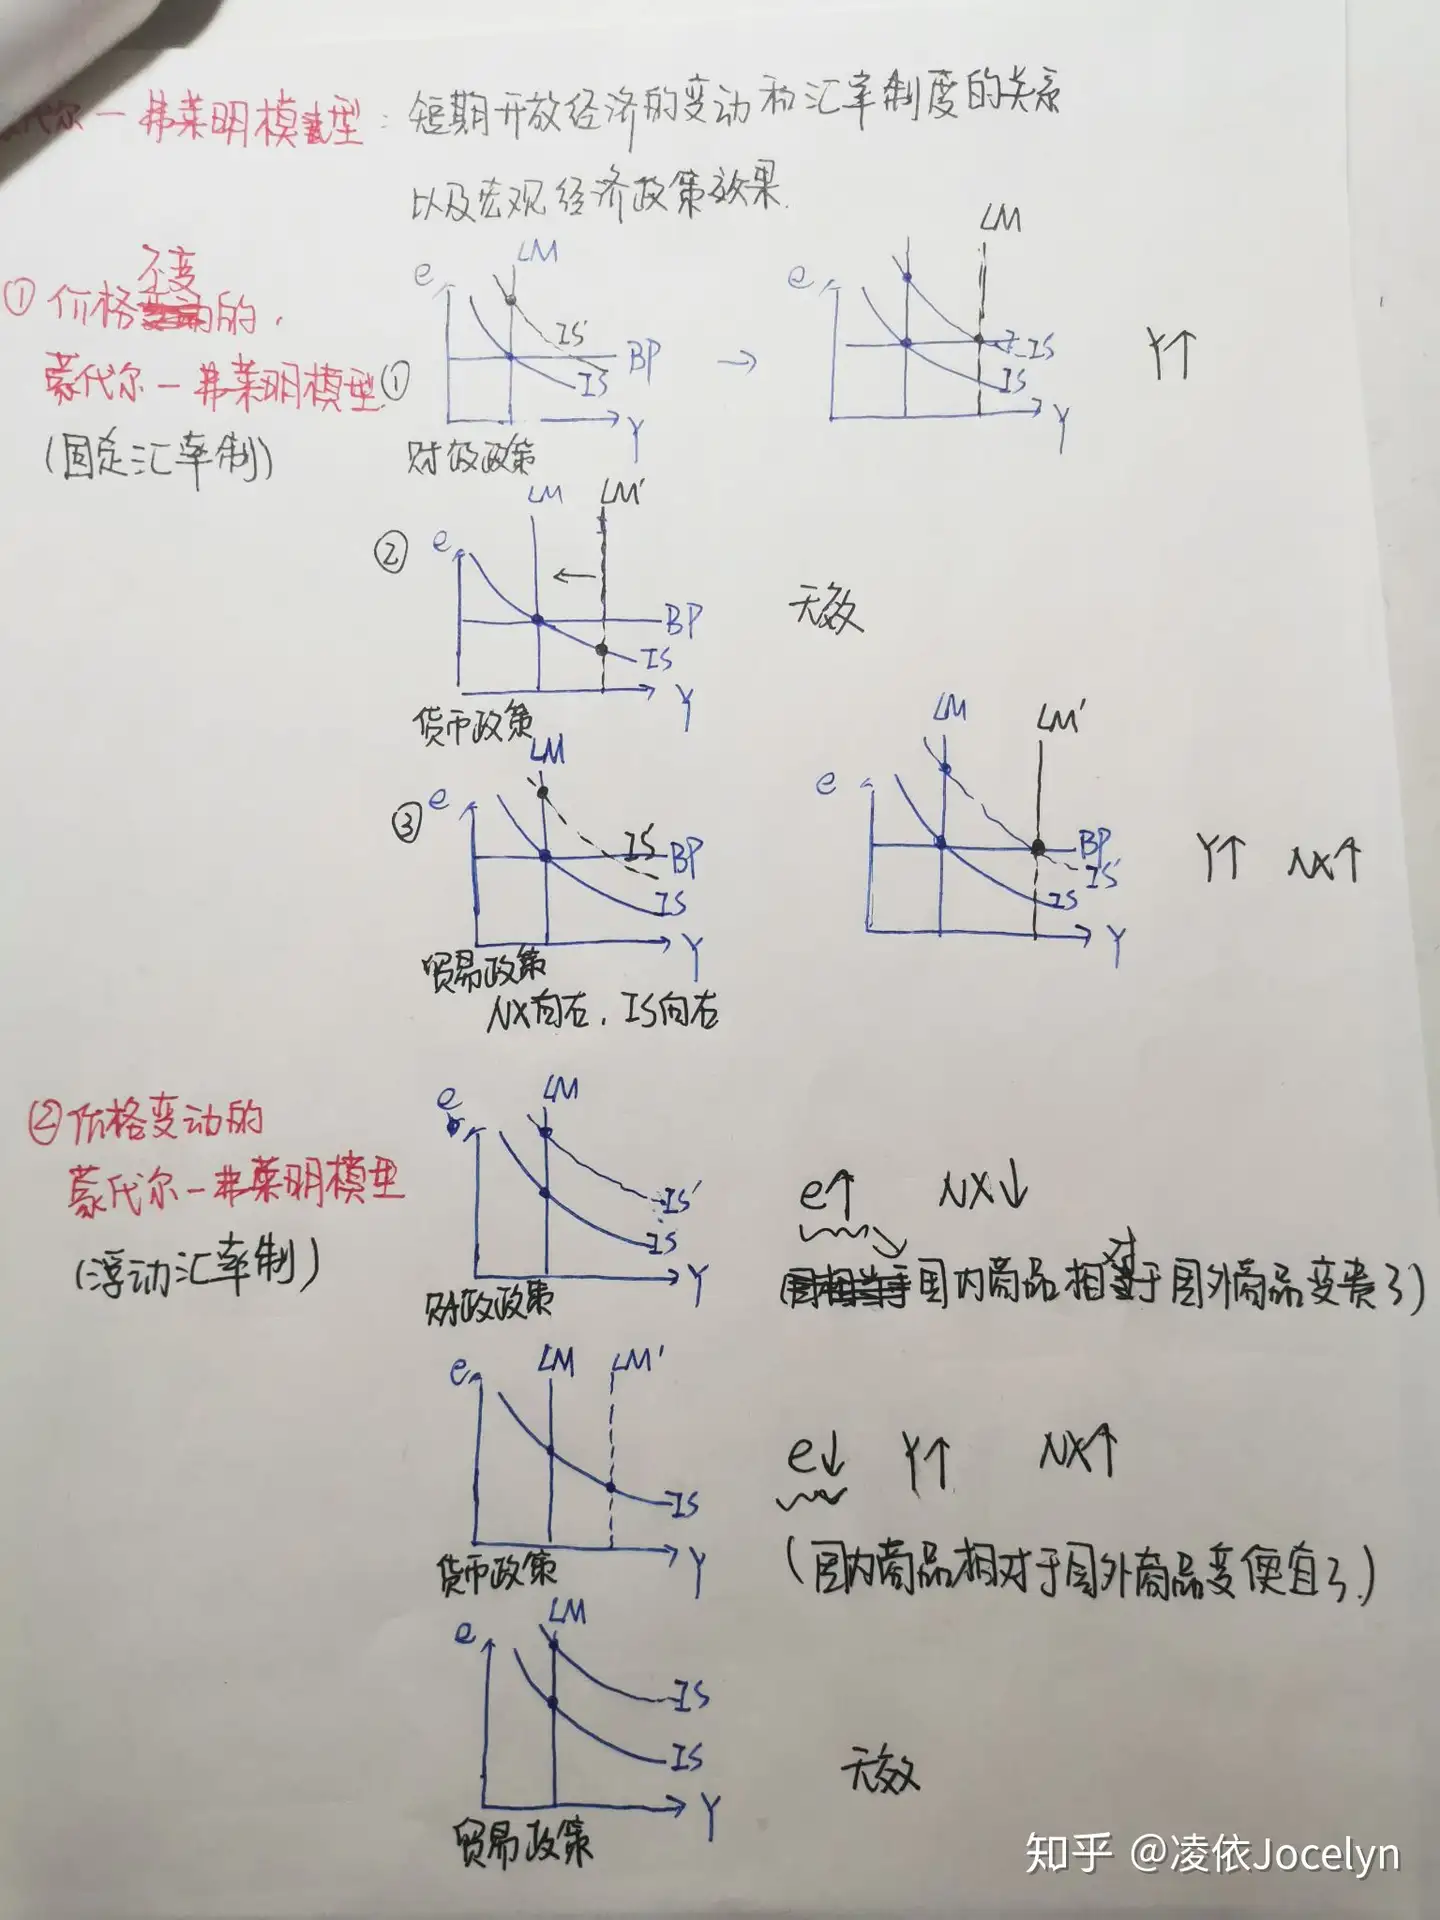 代尔－弗莱明模型：短期开放经济的变动和汇率制度的关系
以及宏观经济政策效果.
①价格不变的.
蒙代尔－弗莱明模型
(固定汇率制)
①
e
LM
IS'
BP
IS
Y
财政政策
→
e
LM
IS
IS
Y
Y↑
②
e
LM
LM'
←
BP
IS
Y
货币政策
无效
③
e
LM
IS'
BP
IS
Y
贸易政策
NX向右，IS向右
e
LM
LM'
BP
IS'
IS
Y
Y↑ NX↑
②价格变动的
蒙代尔－弗莱明模型
(浮动汇率制)
e
LM
IS'
IS
Y
财政政策
e↑ NX↓
(国内商品相对于国外商品变贵了)
e
LM
LM'
IS
Y
货币政策
e↓ Y↑ NX↑
(国内商品相对于国外商品变便宜了.)
e
LM
IS
IS
Y
贸易政策
无效
知乎 @凌依Jocelyn